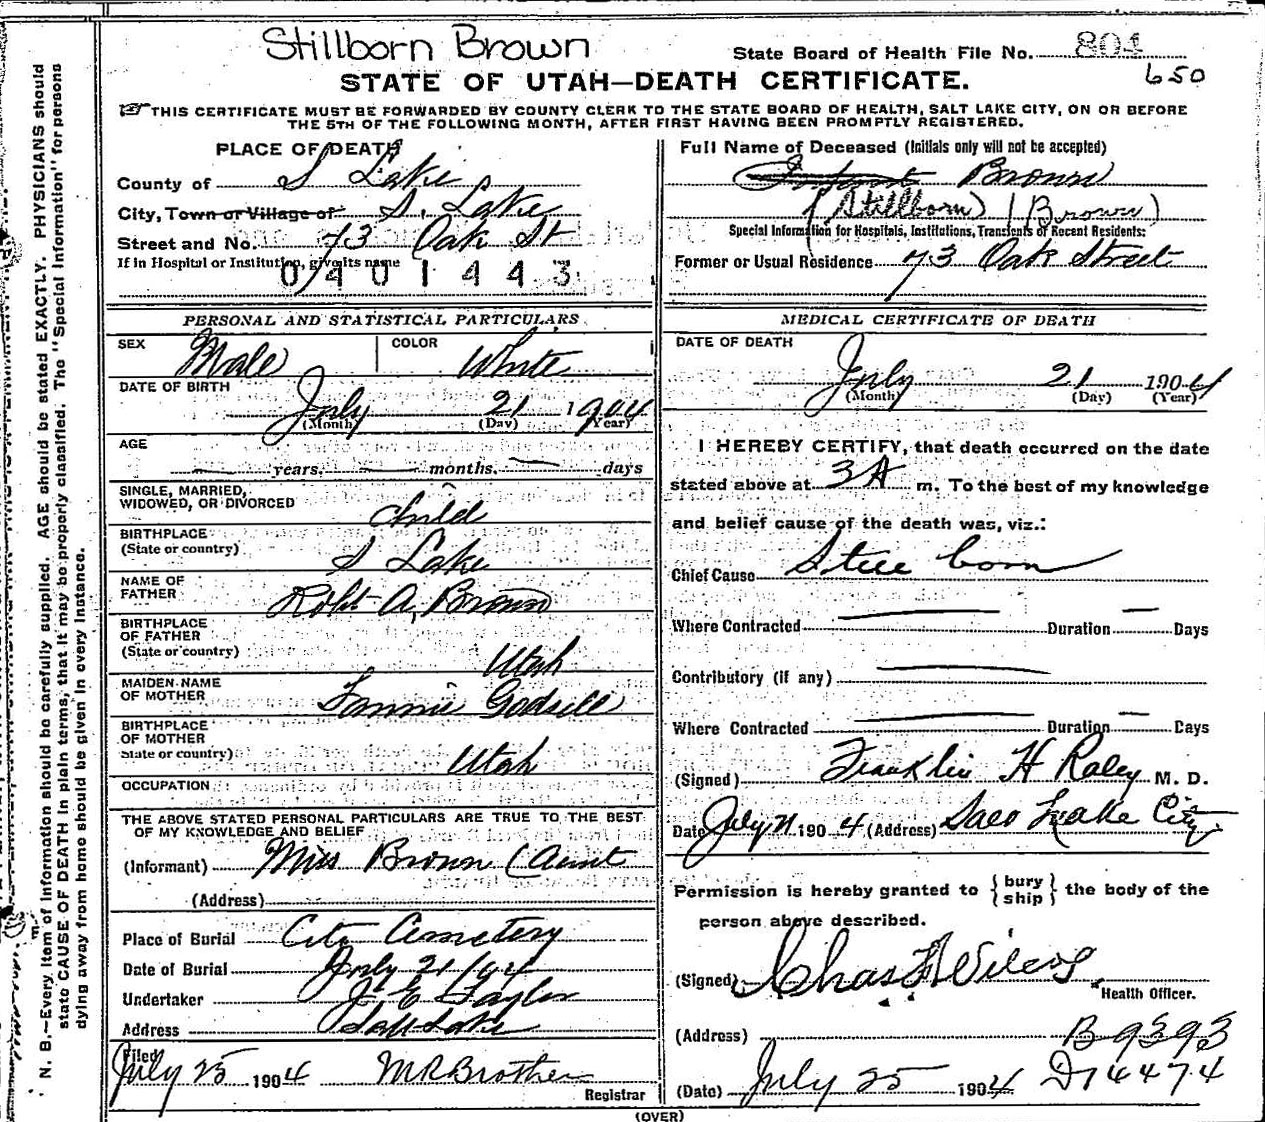 Stillborn Brown
State Board of Health File No. 801
650
STATE OF UTAH—DEATH CERTIFICATE.
THIS CERTIFICATE MUST BE FORWARDED BY COUNTY CLERK TO THE STATE BOARD OF HEALTH, SALT LAKE CITY, ON OR BEFORE
THE 5TH OF THE FOLLOWING MONTH, AFTER FIRST HAVING BEEN PROMPTLY REGISTERED.
PLACE OF DEATH
County of S Lake
City, Town or Village of S. Lake
Street and No. 73 Oak St
If in Hospital or Institution, give its name
0401443
Full Name of Deceased (Initials only will not be accepted)
Infant Brown
(Stillborn) (Brown)
Special Information for Hospitals, Institutions, Transients or Recent Residents:
Former or Usual Residence 73 Oak Street
PERSONAL AND STATISTICAL PARTICULARS
SEX Male COLOR White
DATE OF BIRTH
July 21 1904
(Month) (Day) (Year)
AGE
— years, — months, — days
SINGLE, MARRIED,
WIDOWED, OR DIVORCED child
BIRTHPLACE
(State or country) S Lake
NAME OF
FATHER Robt A. Brown
BIRTHPLACE
OF FATHER
(State or country) Utah
MAIDEN NAME
OF MOTHER Fannie Godsell
BIRTHPLACE
OF MOTHER
State or country) Utah
OCCUPATION
THE ABOVE STATED PERSONAL PARTICULARS ARE TRUE TO THE BEST
OF MY KNOWLEDGE AND BELIEF
(Informant) Miss Brown (Aunt
(Address)
Place of Burial City Cemetery
Date of Burial July 21/04
Undertaker J E Taylor
Address Salt Lake
Filed
July 25 1904 M R Brothen
Registrar
MEDICAL CERTIFICATE OF DEATH
DATE OF DEATH
July 21 1904
(Month) (Day) (Year)
I HEREBY CERTIFY, that death occurred on the date
stated above at 3 A m. To the best of my knowledge
and belief cause of the death was, viz.:
Chief Cause Still born
Where Contracted — Duration — Days
Contributory (if any) —
Where Contracted — Duration — Days
(Signed) Franklin H Raley M. D.
Date July 21 1904 (Address) Salt Lake City
Permission is hereby granted to { bury
ship } the body of the
person above described.
(Signed) Chas F Wilcox
Health Officer.
(Address) B9393
D14474
(Date) July 25 1904
(OVER)
N. B.—Every item of information should be carefully supplied. AGE should be stated EXACTLY. PHYSICIANS should
state CAUSE OF DEATH in plain terms, that it may be properly classified. The "Special Information" for persons
dying away from home should be given in every instance.